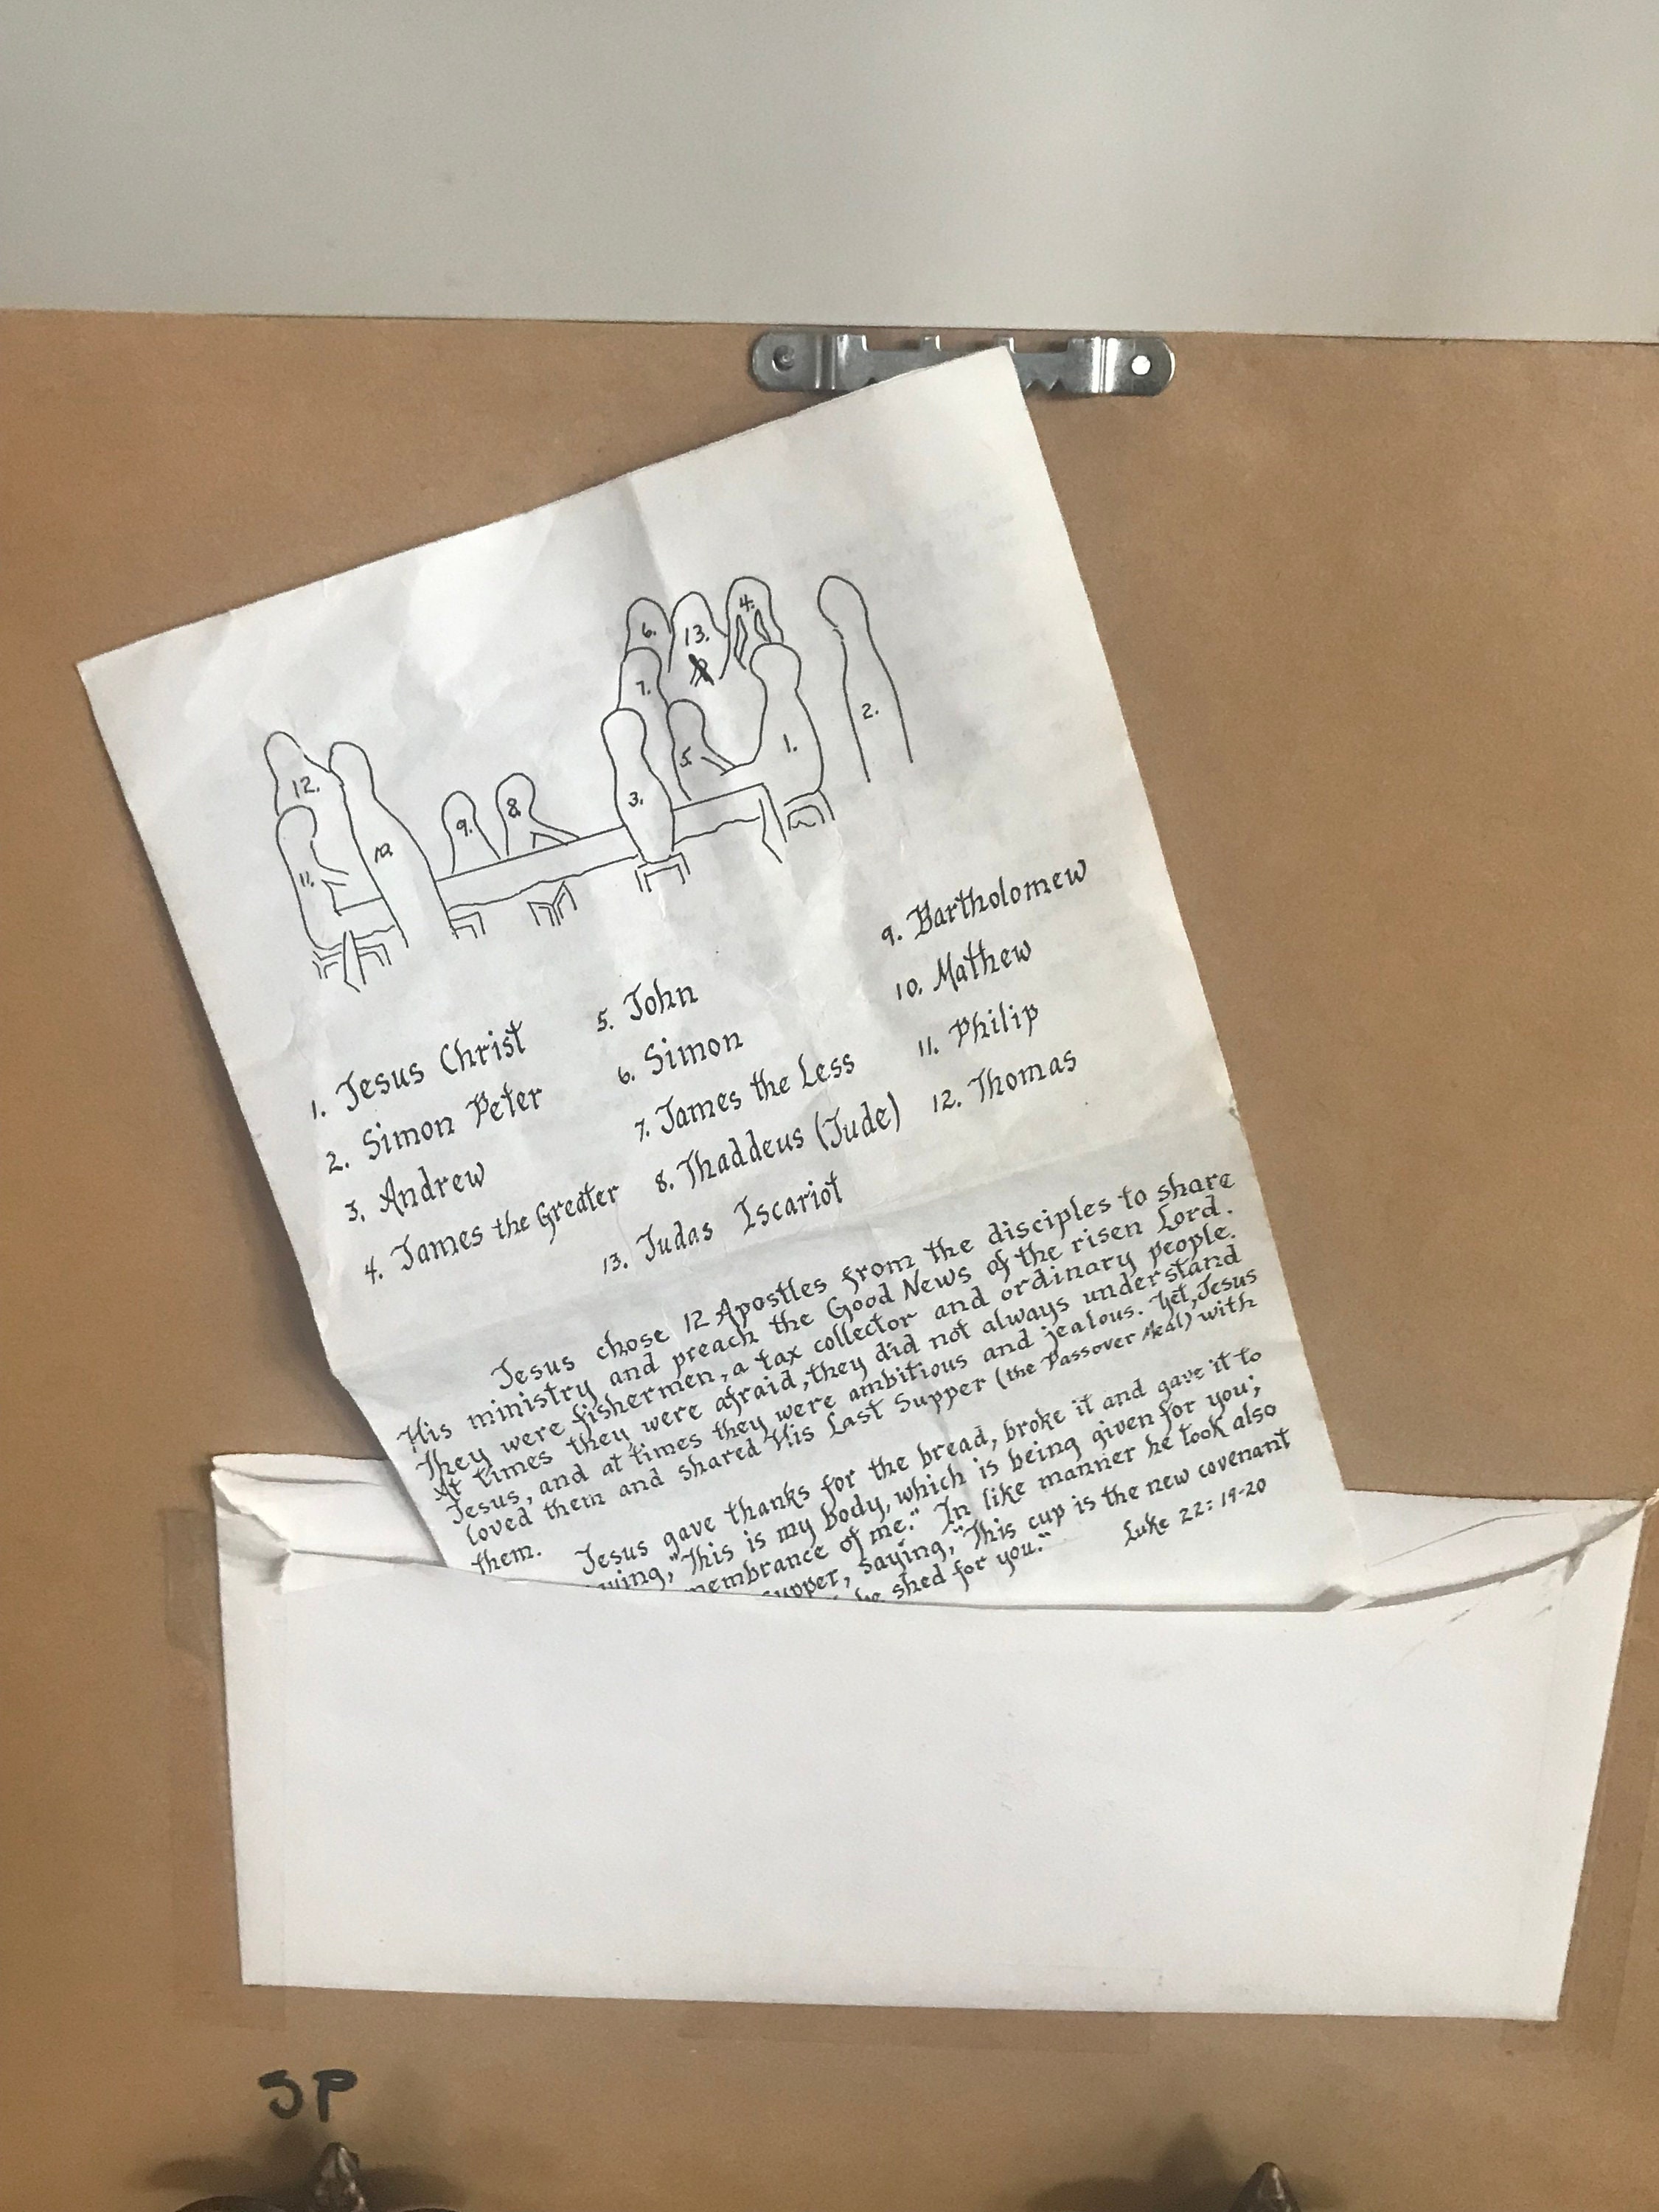 6. 13. 4.
7. 2.
12. 5. 1.
9. 8. 3.
11. 10.
1. Jesus Christ
2. Simon Peter
3. Andrew
4. James the Greater
5. John
6. Simon
7. James the Less
8. Thaddeus (Jude)
9. Bartholomew
10. Mathew
11. Philip
12. Thomas
13. Judas Iscariot
Jesus chose 12 Apostles from the disciples to share
His ministry and preach the Good News of the risen Lord.
They were fishermen, a tax collector and ordinary people.
At times they were afraid, they did not always understand
Jesus, and at times they were ambitious and jealous. Yet, Jesus
loved them and shared His Last Supper (the Passover Meal) with
them.
Jesus gave thanks for the bread, broke it and gave it to
"This is my body, which is being given for you;
of me." In like manner he took also
saying, "This cup is the new covenant
shed for you."
Luke 22:19-20
SP